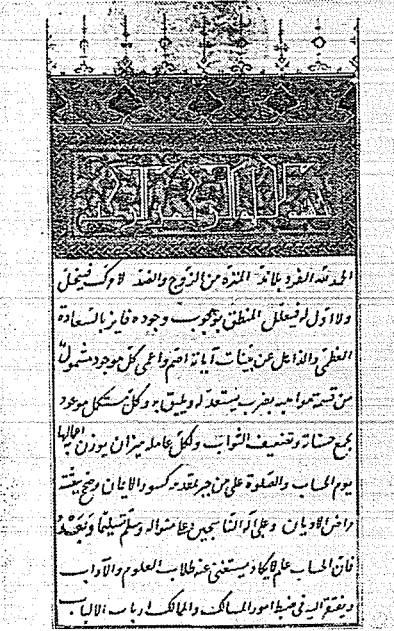 الحمد لله الفرد بلا ندّ المنزّه من الزوج والضد لا
ولا اول له فيعلل المنطق بوجوب وجوده فايز بالسعادة
العظمى والذاهل عن بينات آياته اصم واعمى كل موجود مشمول
من قسمة مواهبه بضرب يستعد له ويليق به وكل مستكمل موعود
بجمع حسناته وتضعيف الثواب ولكل عامل ميزان يوزن
يوم الحساب والصلوة على من جبر بمقدمه كسور الايمان
الاديان وعلى آله الناسجين على منواله وسلم تسليما وبعد
فان الحساب علم لا يكاد يستغنى عنه طلاب العلوم والآداب
ويفتقر اليه في ضبط امور المسالك والممالك ارباب الالباب